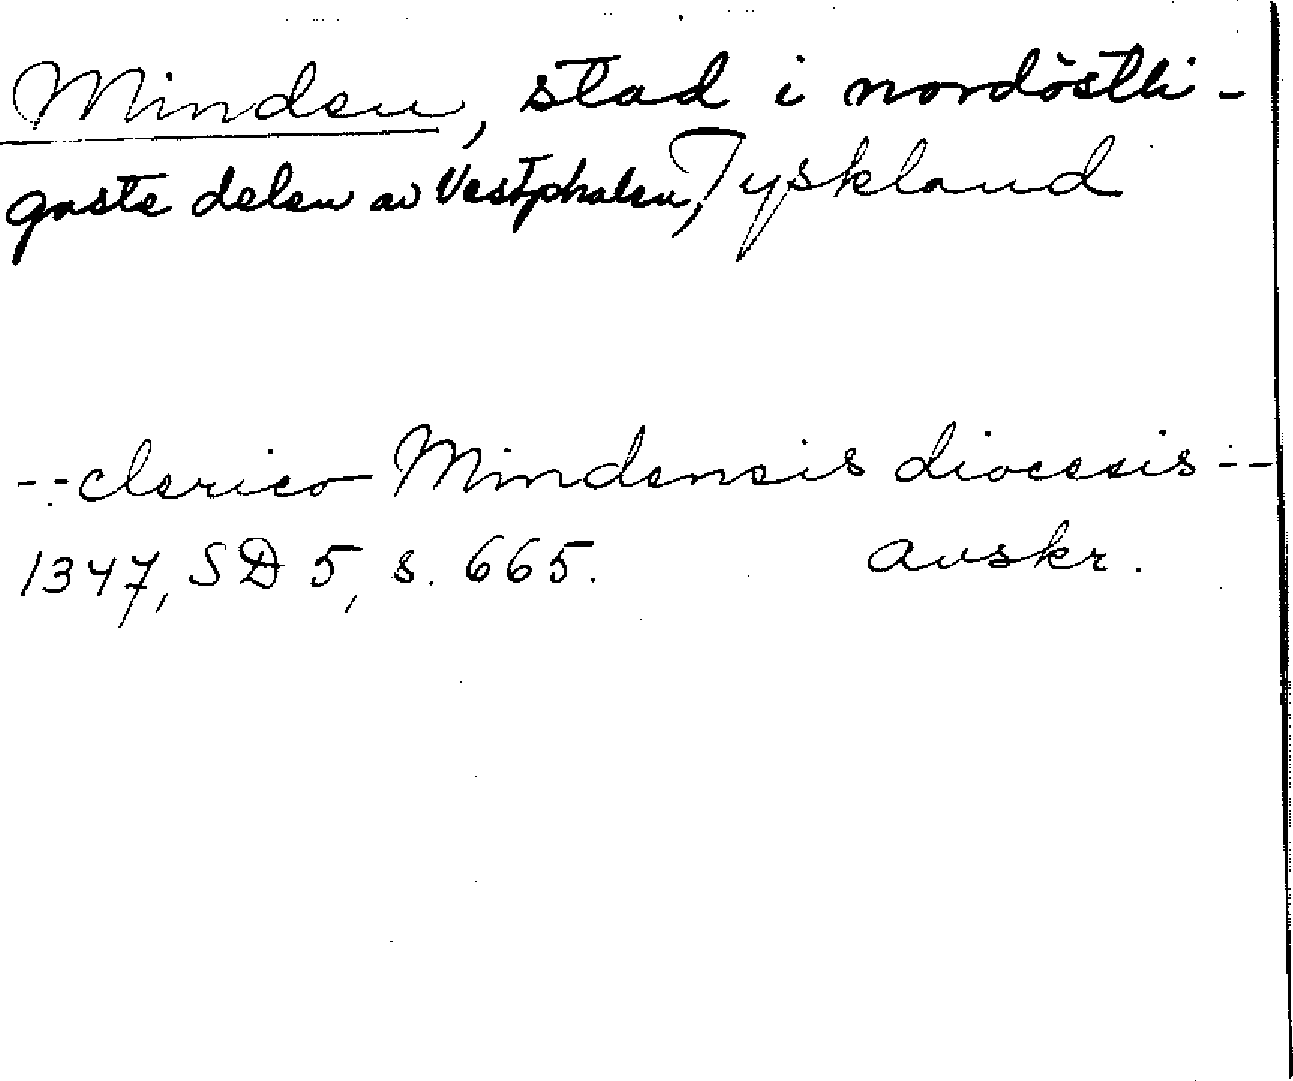 Minden, stad i nordöstli-
gaste delen av Vestphalen, Tyskland
--clerico Mindensis diocesis--
1347, SD 5, s. 665. avskr.